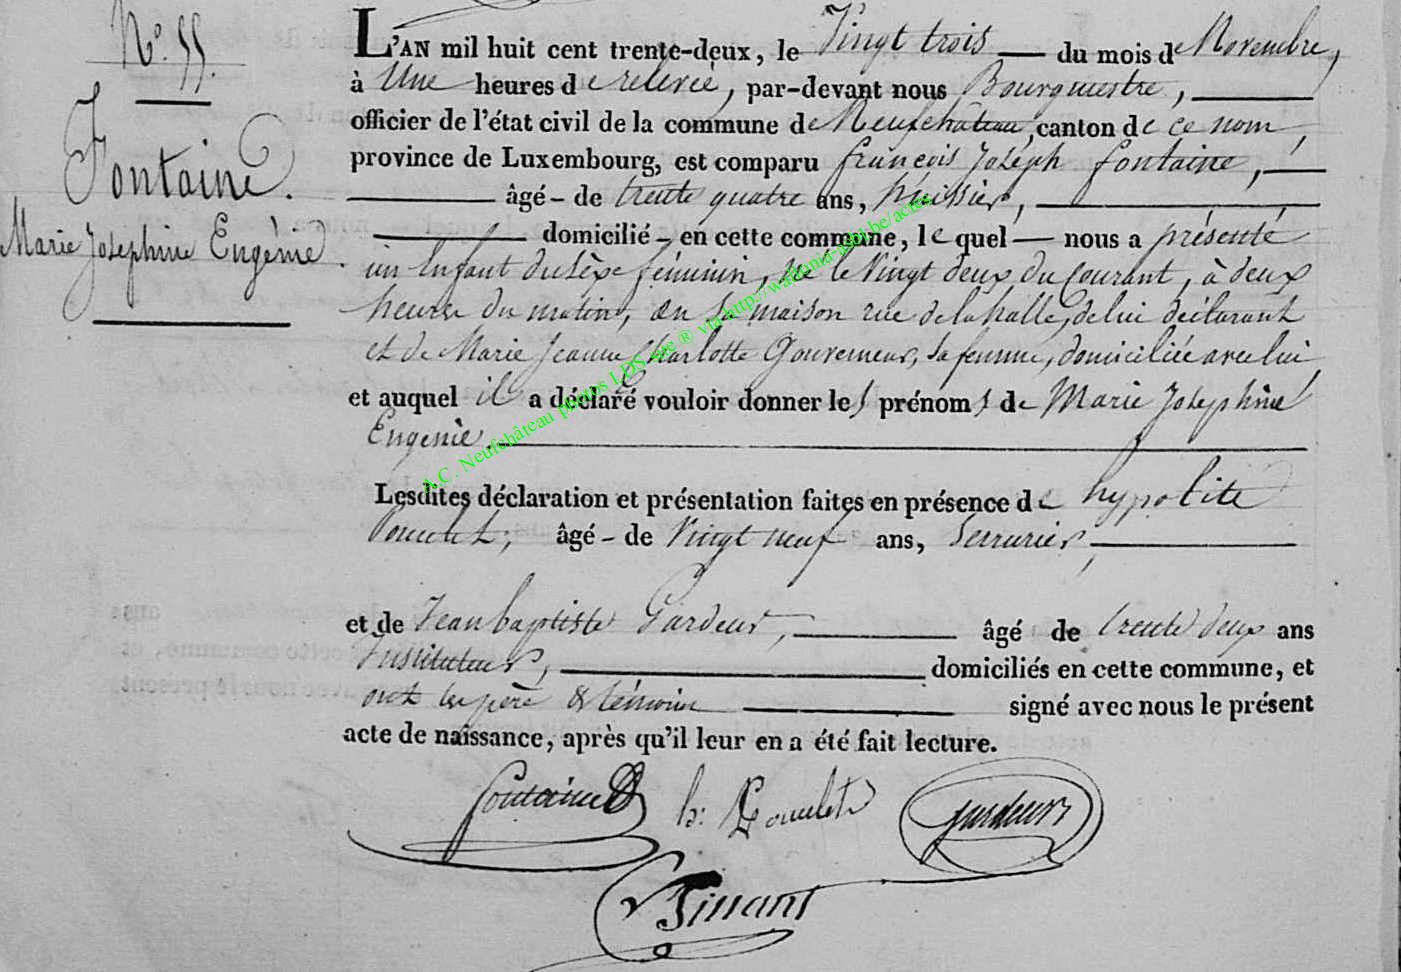 N° 55.
Fontaine.
Marie Josephine Eugènie.
L'AN mil huit cent trente-deux, le Vingt trois du mois de Novembre,
à Une heures de relevée, par-devant nous Bourgmestre,
officier de l'état civil de la commune de Neufchâteau, canton de ce nom,
province de Luxembourg, est comparu françois Joseph fontaine,
âgé - de trente quatre ans, huissier,
domicilié - en cette commune, le quel nous a présenté
un Enfant du sèxe féminin, né le Vingt deux du Courant, à deux
heures du matin, en sa maison rue de la halle, de lui déclarant
et de Marie Jeanne Charlotte Gouverneur, sa femme, domiciliée avec lui
et auquel il a déclaré vouloir donner les prénoms de Marie Josephine
Eugenie.
Lesdites déclaration et présentation faites en présence de hypolite
âgé - de Vingt neuf ans, Serrurier,
et de Jean baptiste Gardeur, âgé de trente deux ans
Instituteur, domiciliés en cette commune, et
ont les père & témoins signé avec nous le présent
acte de naissance, après qu'il leur en a été fait lecture.
fontaine h: gardeur
Tinant
A.C. Neufchâteau photos LDS site ® via http://wallonia-asbl.be/actes